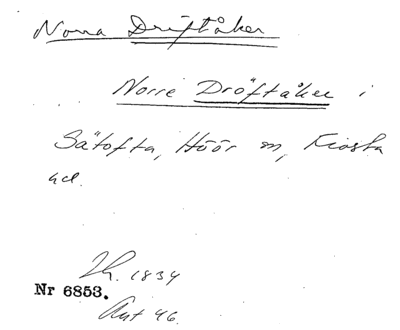 Norra Driftåker
Norre Dröftåker i
Sätofta, Höör sn, Frosta
hd.
Lh. 1834
Nr 6853.
Avt 46.